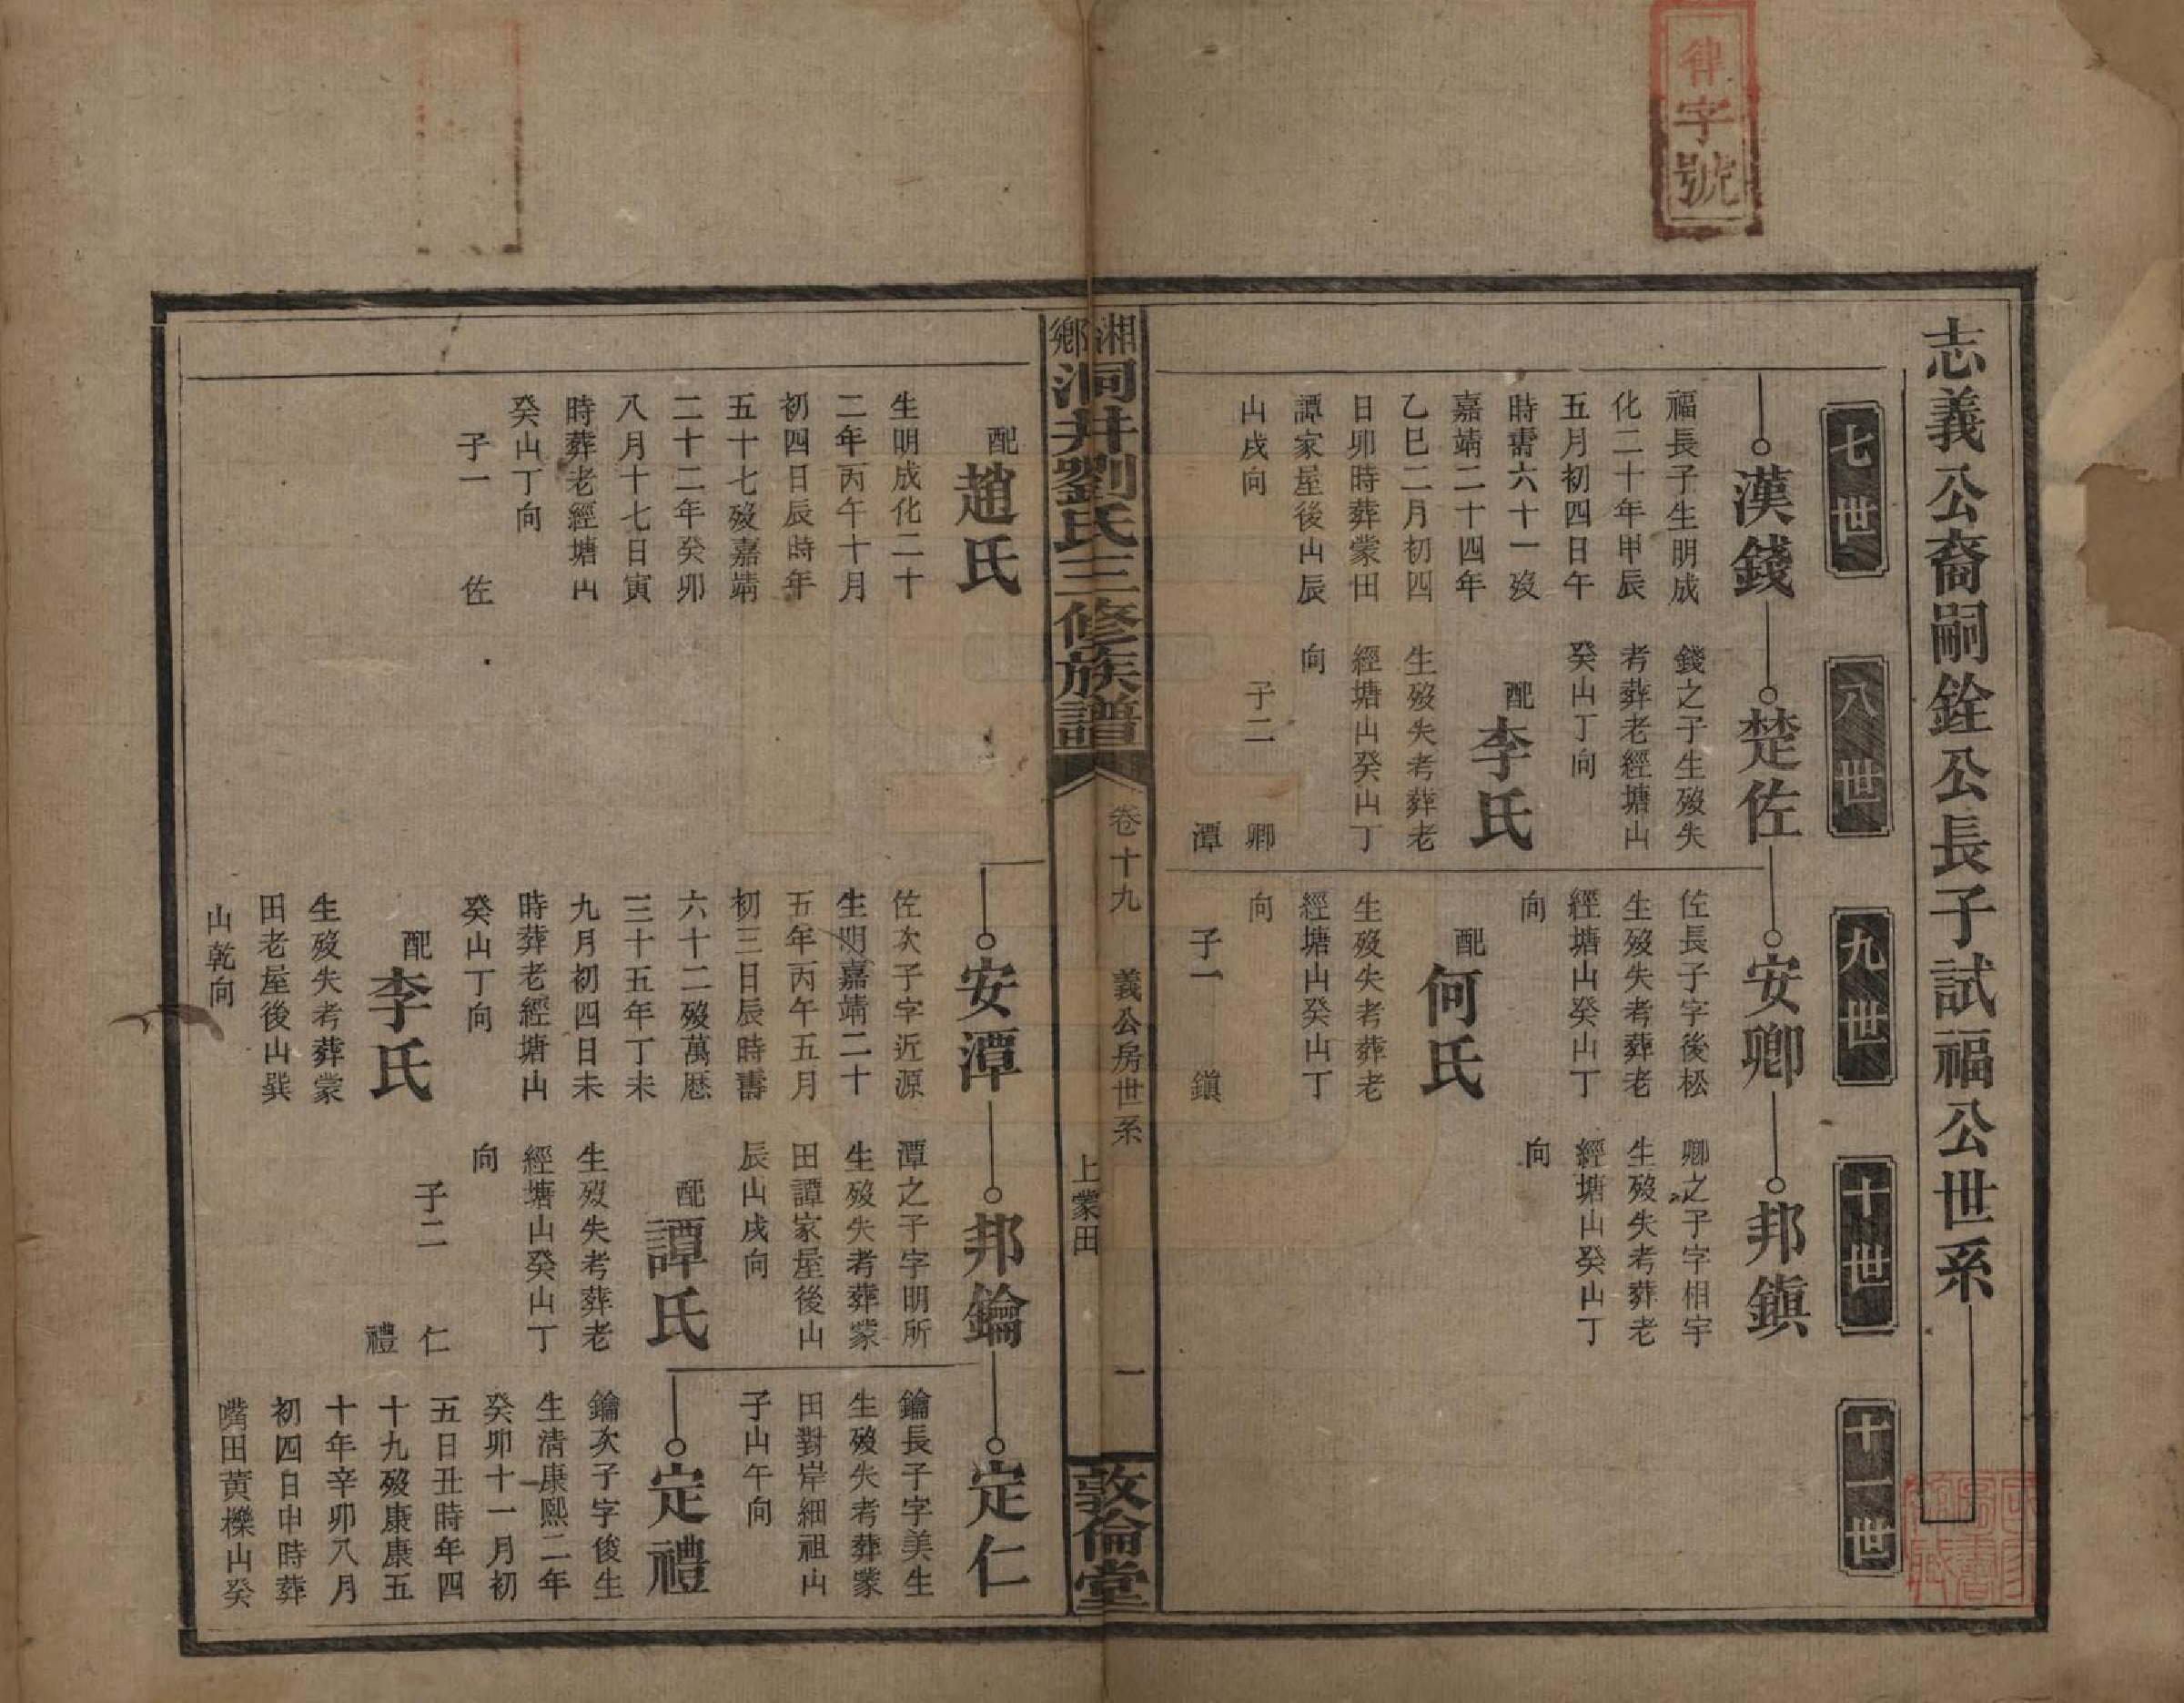 律字號
志義公裔嗣銓公長子試福公世系
七世
八世
九世
十世
十一世
漢錢
福長子生明成
化二十年甲辰
五月初四日午
時壽六十一歿
嘉靖二十四年
乙巳二月初四
日卯時葬蒙田
譚家屋後山辰
山戌向
楚佐
錢之子生歿失
考葬老經塘山
癸山丁向
配
李氏
生歿失考葬老
經塘山癸山丁
向
子二 卿
潭
安卿
佐長子字後松
生歿失考葬老
經塘山癸山丁
向
配
何氏
生歿失考葬老
經塘山癸山丁
向
子一 鎮
邦鎮
卿之子字相宇
生歿失考葬老
經塘山癸山丁
向
湘鄉洞井劉氏三修族譜
卷十九 義公房世系 一
上蒙田
敦倫堂
配
趙氏
生明成化二十
二年丙午十月
初四日辰時年
五十七歿嘉靖
二十二年癸卯
八月十七日寅
時葬老經塘山
癸山丁向
子一 佐
安潭
佐次子字近源
生明嘉靖二十
五年丙午五月
初三日辰時壽
六十二歿萬曆
三十五年丁未
九月初四日未
時葬老經塘山
癸山丁向
配
李氏
生歿失考葬蒙
田老屋後山巽
山乾向
邦鑰
潭之子字明所
生歿失考葬蒙
田譚家屋後山
辰山戌向
配
譚氏
生歿失考葬老
經塘山癸山丁
向
子二 仁
禮
定仁
鑰長子字美生
生歿失考葬蒙
田對岸細祖山
子山午向
定禮
鑰次子字俊生
生清康熙二年
癸卯十一月初
五日丑時年四
十九歿康康五
十年辛卯八月
初四日申時葬
嘴田黃櫟山癸